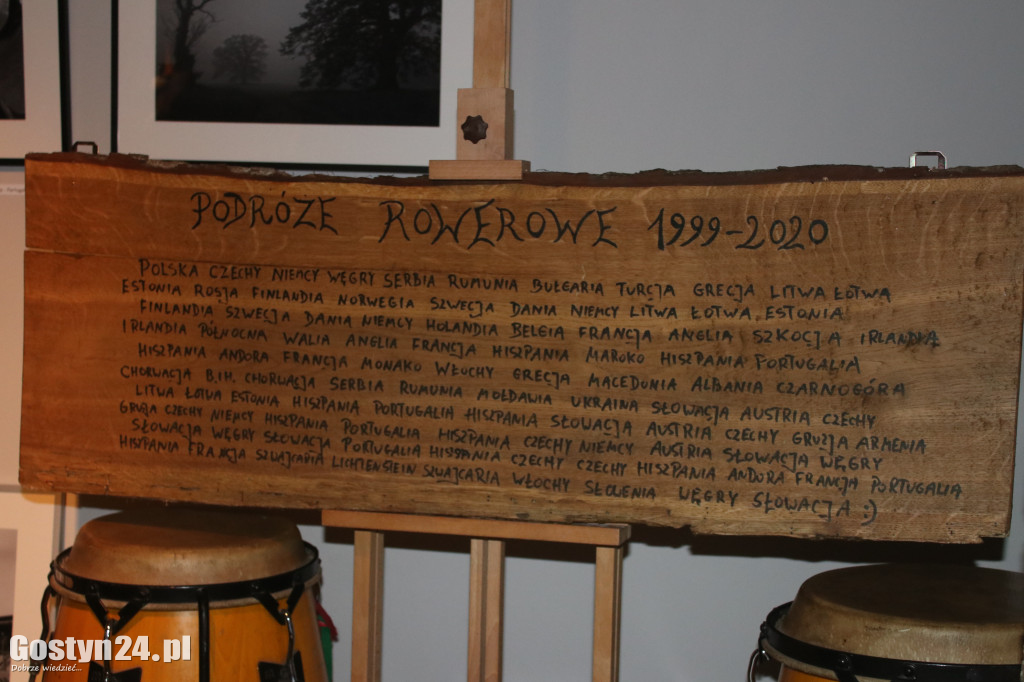 PODRÓŻE ROWEROWE 1999-2020
POLSKA CZECHY NIEMCY WĘGRY SERBIA RUMUNIA BUŁGARIA TURCJA GRECJA LITWA ŁOTWA
ESTONIA ROSJA FINLANDIA NORWEGIA SZWECJA DANIA NIEMCY LITWA ŁOTWA ESTONIA
FINLANDIA SZWECJA DANIA NIEMCY HOLANDIA BELGIA FRANCJA ANGLIA SZKOCJA IRLANDIA
IRLANDIA PÓŁNOCNA WALIA ANGLIA FRANCJA HISZPANIA MAROKO HISZPANIA PORTUGALIA
HISZPANIA ANDORA FRANCJA MONAKO WŁOCHY GRECJA MACEDONIA ALBANIA CZARNOGÓRA
CHORWACJA B.IH. CHORWACJA SERBIA RUMUNIA MOŁDAWIA UKRAINA SŁOWACJA AUSTRIA CZECHY
LITWA ŁOTWA ESTONIA HISZPANIA PORTUGALIA HISZPANIA SŁOWACJA AUSTRIA CZECHY GRUZJA ARMENIA
GRUZJA CZECHY NIEMCY HISZPANIA PORTUGALIA HISZPANIA CZECHY NIEMCY AUSTRIA SŁOWACJA WĘGRY
SŁOWACJA WĘGRY SŁOWACJA PORTUGALIA HISZPANIA CZECHY CZECHY HISZPANIA ANDORA FRANCJA PORTUGALIA
HISZPANIA FRANCJA SZWAJCARIA LICHTENSTEIN SZWAJCARIA WŁOCHY SŁOWENIA WĘGRY SŁOWACJA :)
Gostyn24.pl
Dobrze wiedzieć...